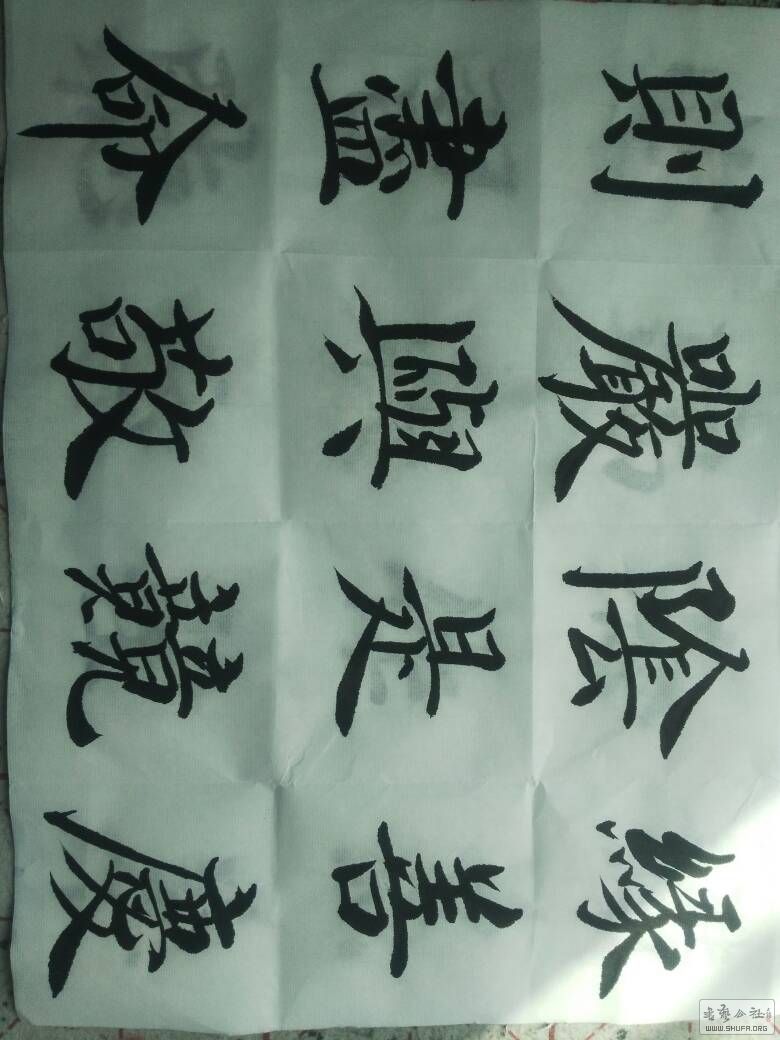 緣善慶
陰是競
嚴與敬
則盡命
书艺公社
WWW.SHUFA.ORG